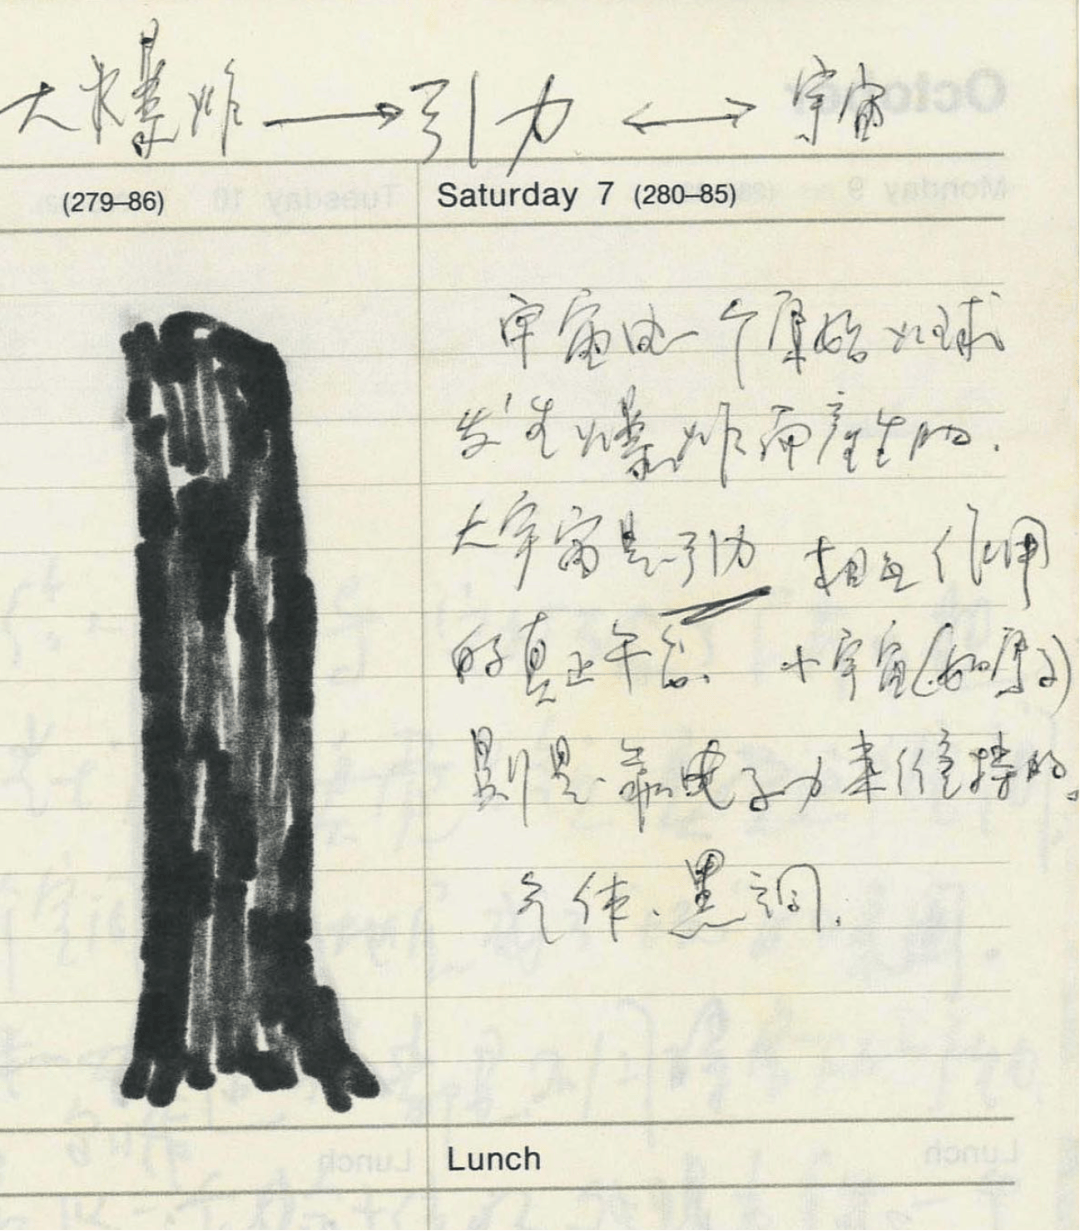 大爆炸 → 引力 ↔ 宇宙
(279–86)
Saturday 7 (280–85)
宇宙由一个原始火球
发生爆炸而產生的.
大宇宙是引力 相互作用
的真正午台. 小宇宙(如原子)
則是靠电子力来維持的。
气体、黑洞.
Lunch